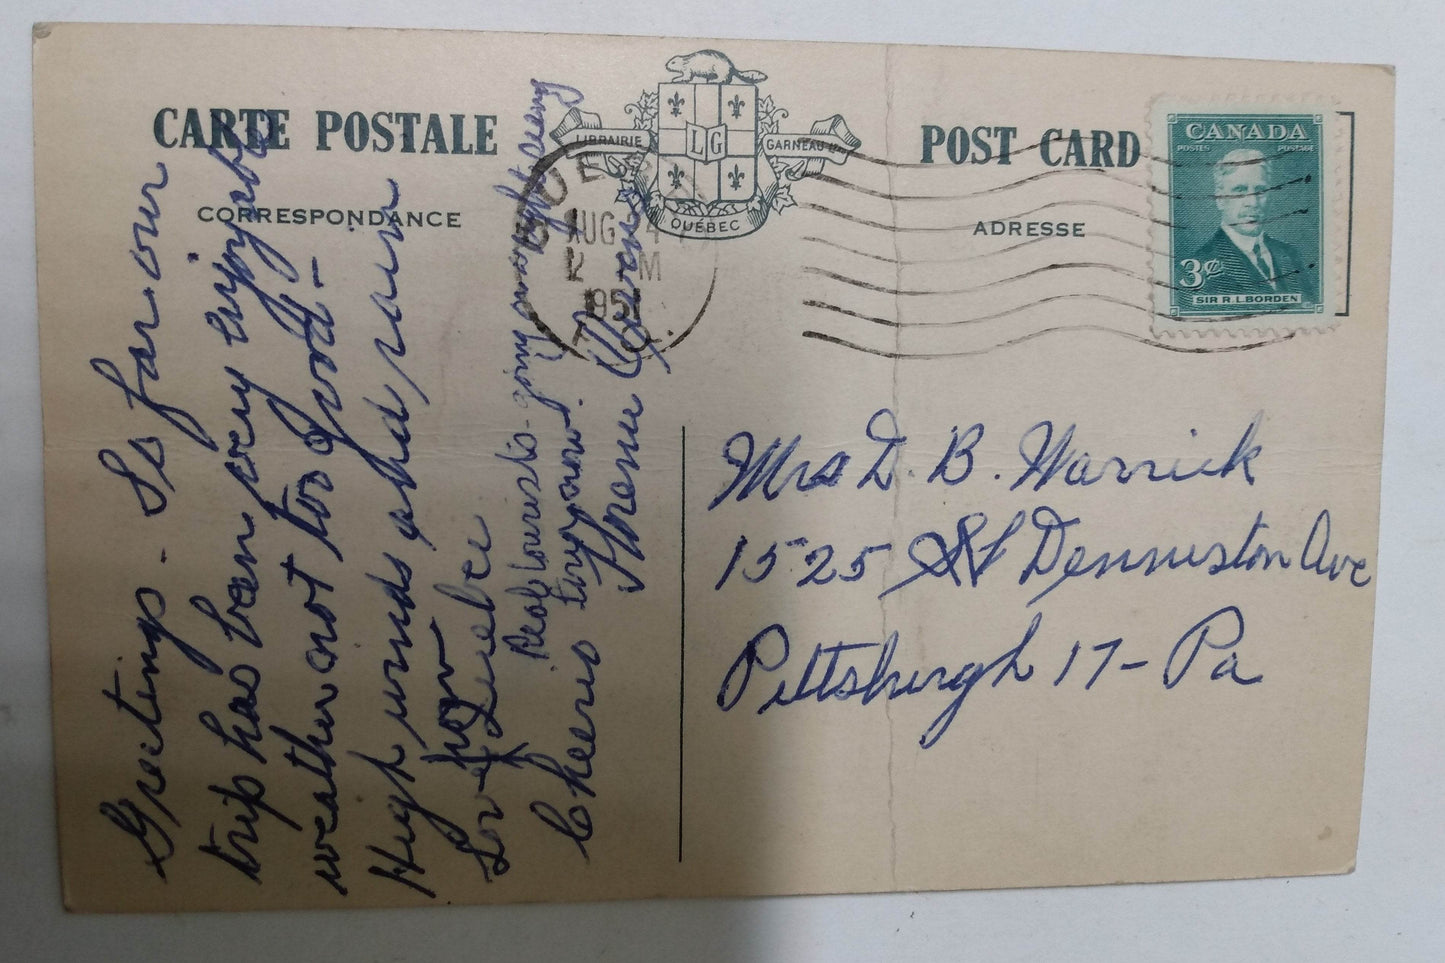 CARTE POSTALE
CORRESPONDANCE
LIBRAIRIE
LG
GARNEAU
QUÉBEC
POST CARD
ADRESSE
CANADA
POSTES POSTAGE
3¢
SIR R.L. BORDEN
QUEBEC
AUG 4
M
1951
Greetings - So far our
trip has been very enjoyable
weather not too good -
High winds and rain
now
Love Quebec
Real tourists - going sight seeing
tomorrow.
Cheerio
Mrs D. B. Warrick
1525 Denniston Ave
Pittsburgh 17 - Pa